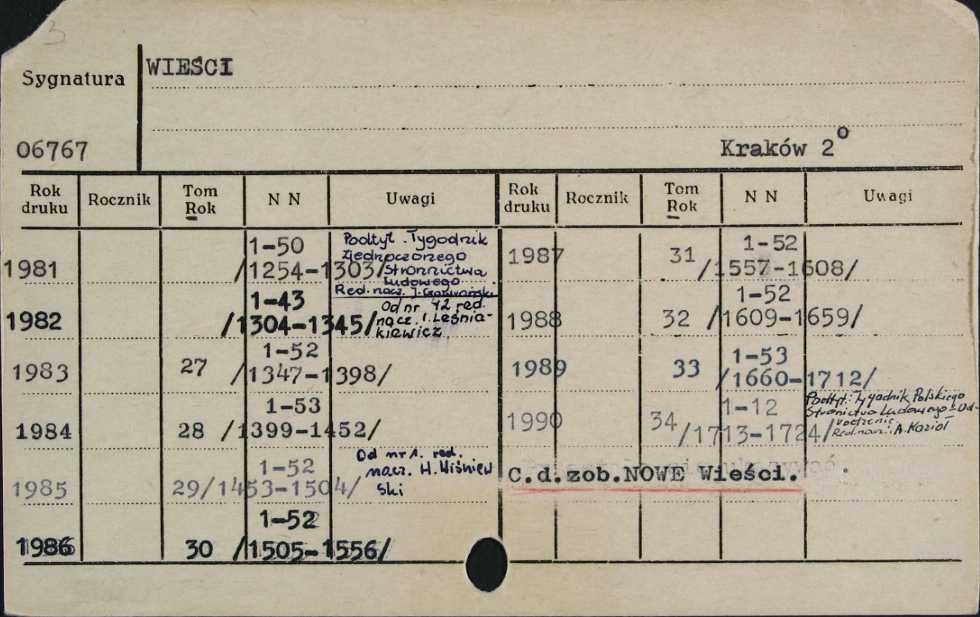 Sygnatura
WIEŚCI
06767
Kraków 2°
Rok druku Rocznik Tom Rok N N Uwagi
1981 1-50 /1254-1303/ Podtyt. Tygodnik
Zjednoczonego
Stronnictwa
Ludowego.
Red. nacz. J.
1982 1-43 /1304-1345/ Od nr 42 red.
nacz. I. Leśnia-
kiewicz
1983 27 1-52 /1347-1398/
1984 28 1-53 /1399-1452/
1985 29 1-52 /1453-1504/ Od nr 1. red.
nacz. H. Wiśniew
ski
1986 30 1-52 /1505-1556/
Rok druku Rocznik Tom Rok N N Uwagi
1987 31 1-52 /1557-1608/
1988 32 1-52 /1609-1659/
1989 33 1-53 /1660-1712/
1990 34 1-12 /1713-1724/ Podtyt: Tygodnik Polskiego
Stronictwa Ludowego - Od-
rodzenie
Red. nacz: A. Kozioł
C.d.zob.NOWE Wieści.